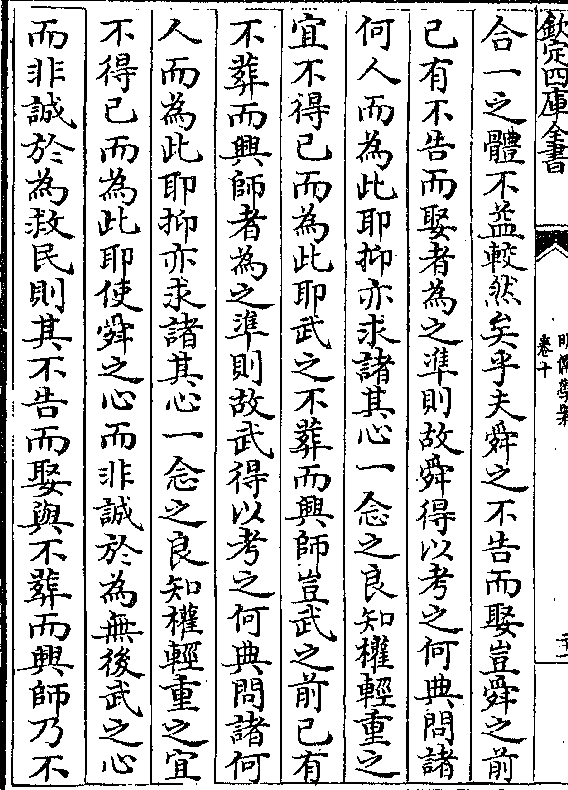 欽定四庫全書
明儒學案
卷十
合一之體不益較然矣乎夫舜之不告而娶豈舜之前
已有不告而娶者為之準則故舜得以考之何典問諸
何人而為此耶抑亦求諸其心一念之良知權輕重之
宜不得已而為此耶武之不葬而興師豈武之前已有
不葬而興師者為之準則故武得以考之何典問諸何
人而為此耶抑亦求諸其心一念之良知權輕重之宜
不得已而為此耶使舜之心而非誠於為無後武之心
而非誠於為救民則其不告而娶與不葬而興師乃不